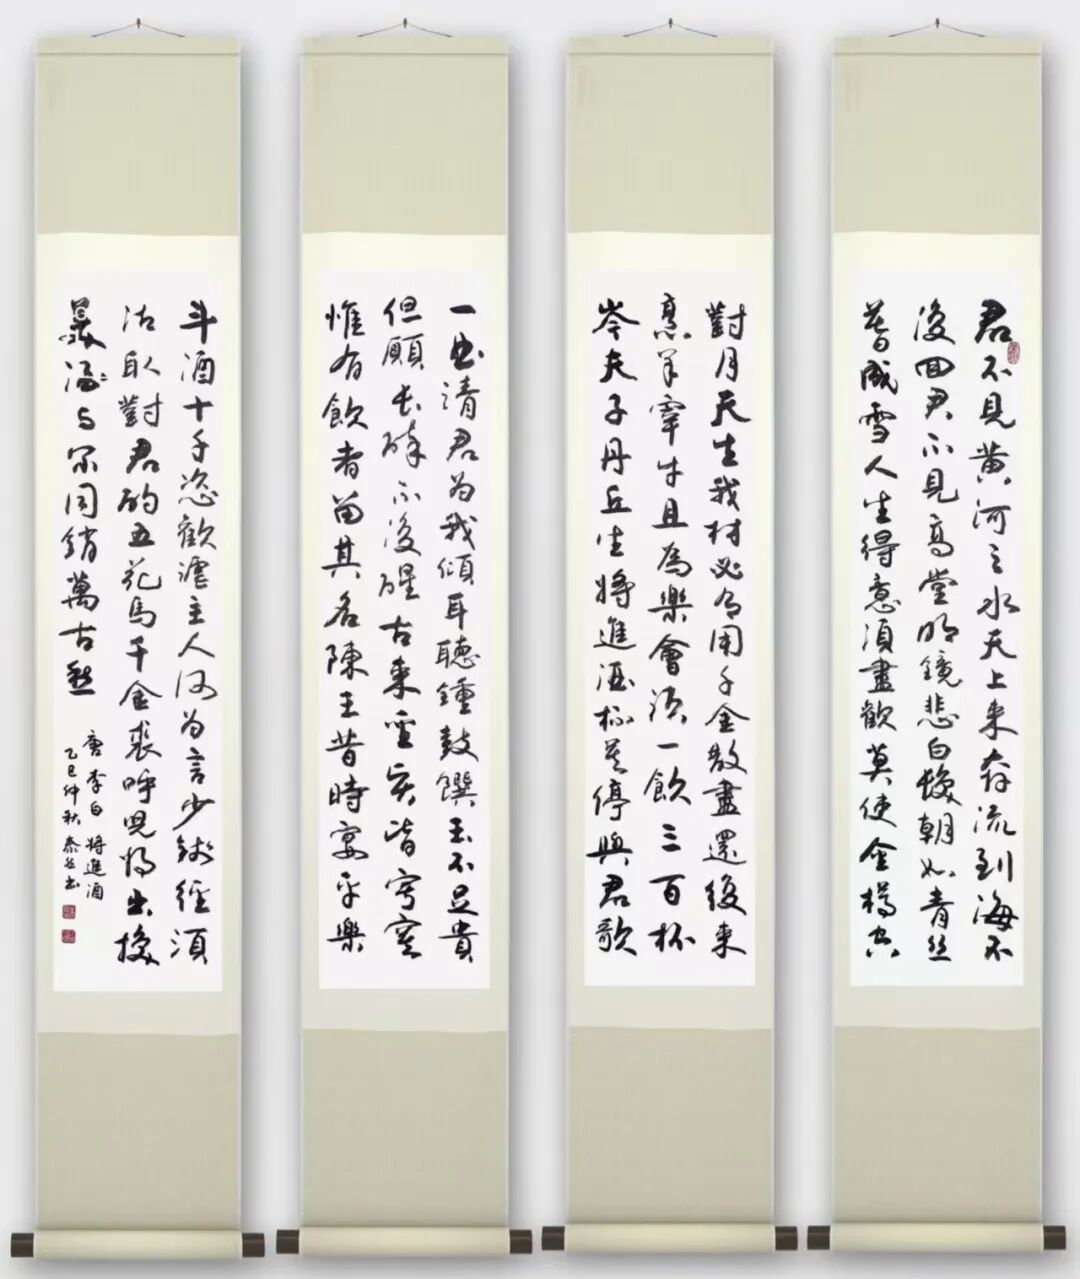 君不見黄河之水天上来奔流到海不
復回君不見高堂明鏡悲白髮朝如青丝
暮成雪人生得意須盡歡莫使金樽空
對月天生我材必有用千金散盡還復来
烹羊宰牛且為樂會須一飲三百杯
岑夫子丹丘生將進酒杯莫停與君歌
一曲請君为我傾耳聽鍾鼓饌玉不足貴
但願長醉不復醒古来聖賢皆寂寞
惟有飲者留其名陳王昔時宴平樂
斗酒十千恣歡謔主人何为言少錢徑須
沽取對君酌五花馬千金裘呼兒將出換
美酒与尔同銷萬古愁
唐李白將進酒
乙巳仲秋